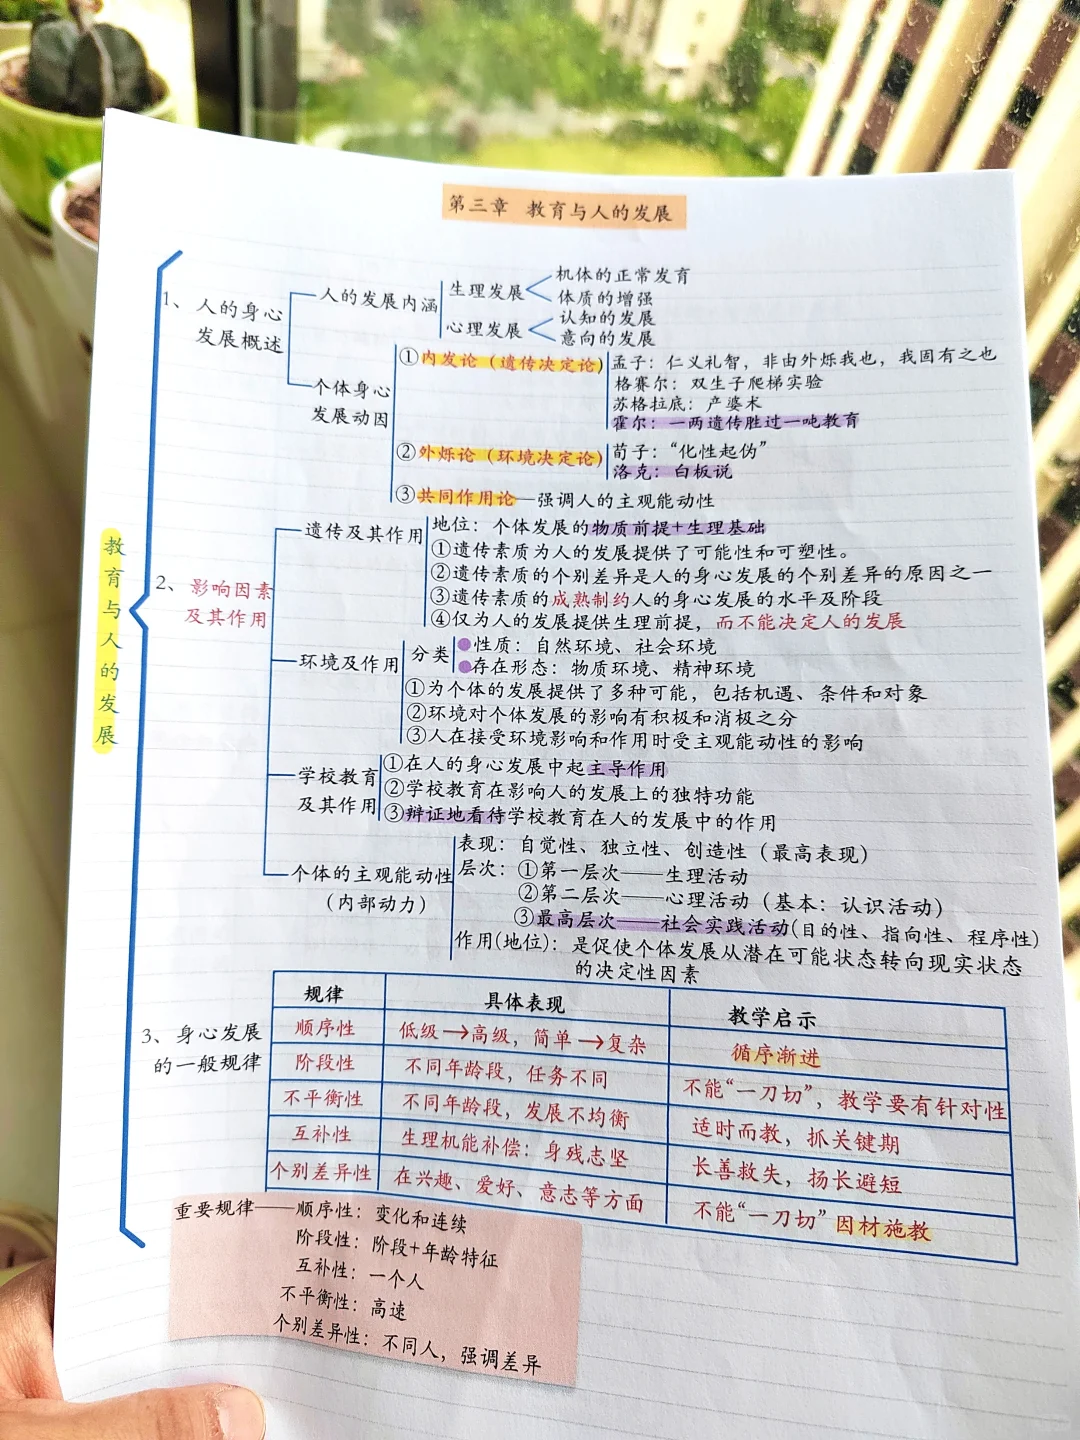 第三章 教育与人的发展
教育与人的发展
1、人的身心
发展概述
人的发展内涵
生理发展
机体的正常发育
体质的增强
心理发展
认知的发展
意向的发展
个体身心
发展动因
①内发论（遗传决定论）
孟子：仁义礼智，非由外烁我也，我固有之也
格赛尔：双生子爬梯实验
苏格拉底：产婆术
霍尔：一两遗传胜过一吨教育
②外烁论（环境决定论）
荀子：“化性起伪”
洛克：白板说
③共同作用论—强调人的主观能动性
2、影响因素
及其作用
遗传及其作用
地位：个体发展的物质前提+生理基础
①遗传素质为人的发展提供了可能性和可塑性。
②遗传素质的个别差异是人的身心发展的个别差异的原因之一
③遗传素质的成熟制约人的身心发展的水平及阶段
④仅为人的发展提供生理前提，而不能决定人的发展
环境及作用
分类
●性质：自然环境、社会环境
●存在形态：物质环境、精神环境
①为个体的发展提供了多种可能，包括机遇、条件和对象
②环境对个体发展的影响有积极和消极之分
③人在接受环境影响和作用时受主观能动性的影响
学校教育
及其作用
①在人的身心发展中起主导作用
②学校教育在影响人的发展上的独特功能
③辩证地看待学校教育在人的发展中的作用
个体的主观能动性
（内部动力）
表现：自觉性、独立性、创造性（最高表现）
层次：①第一层次——生理活动
②第二层次——心理活动（基本：认识活动）
③最高层次——社会实践活动(目的性、指向性、程序性)
作用(地位)：是促使个体发展从潜在可能状态转向现实状态
的决定性因素
3、身心发展
的一般规律
规律 具体表现 教学启示
顺序性 低级→高级，简单→复杂 循序渐进
阶段性 不同年龄段，任务不同 不能“一刀切”，教学要有针对性
不平衡性 不同年龄段，发展不均衡 适时而教，抓关键期
互补性 生理机能补偿：身残志坚 长善救失，扬长避短
个别差异性 在兴趣、爱好、意志等方面 不能“一刀切”因材施教
重要规律——顺序性：变化和连续
阶段性：阶段+年龄特征
互补性：一个人
不平衡性：高速
个别差异性：不同人，强调差异